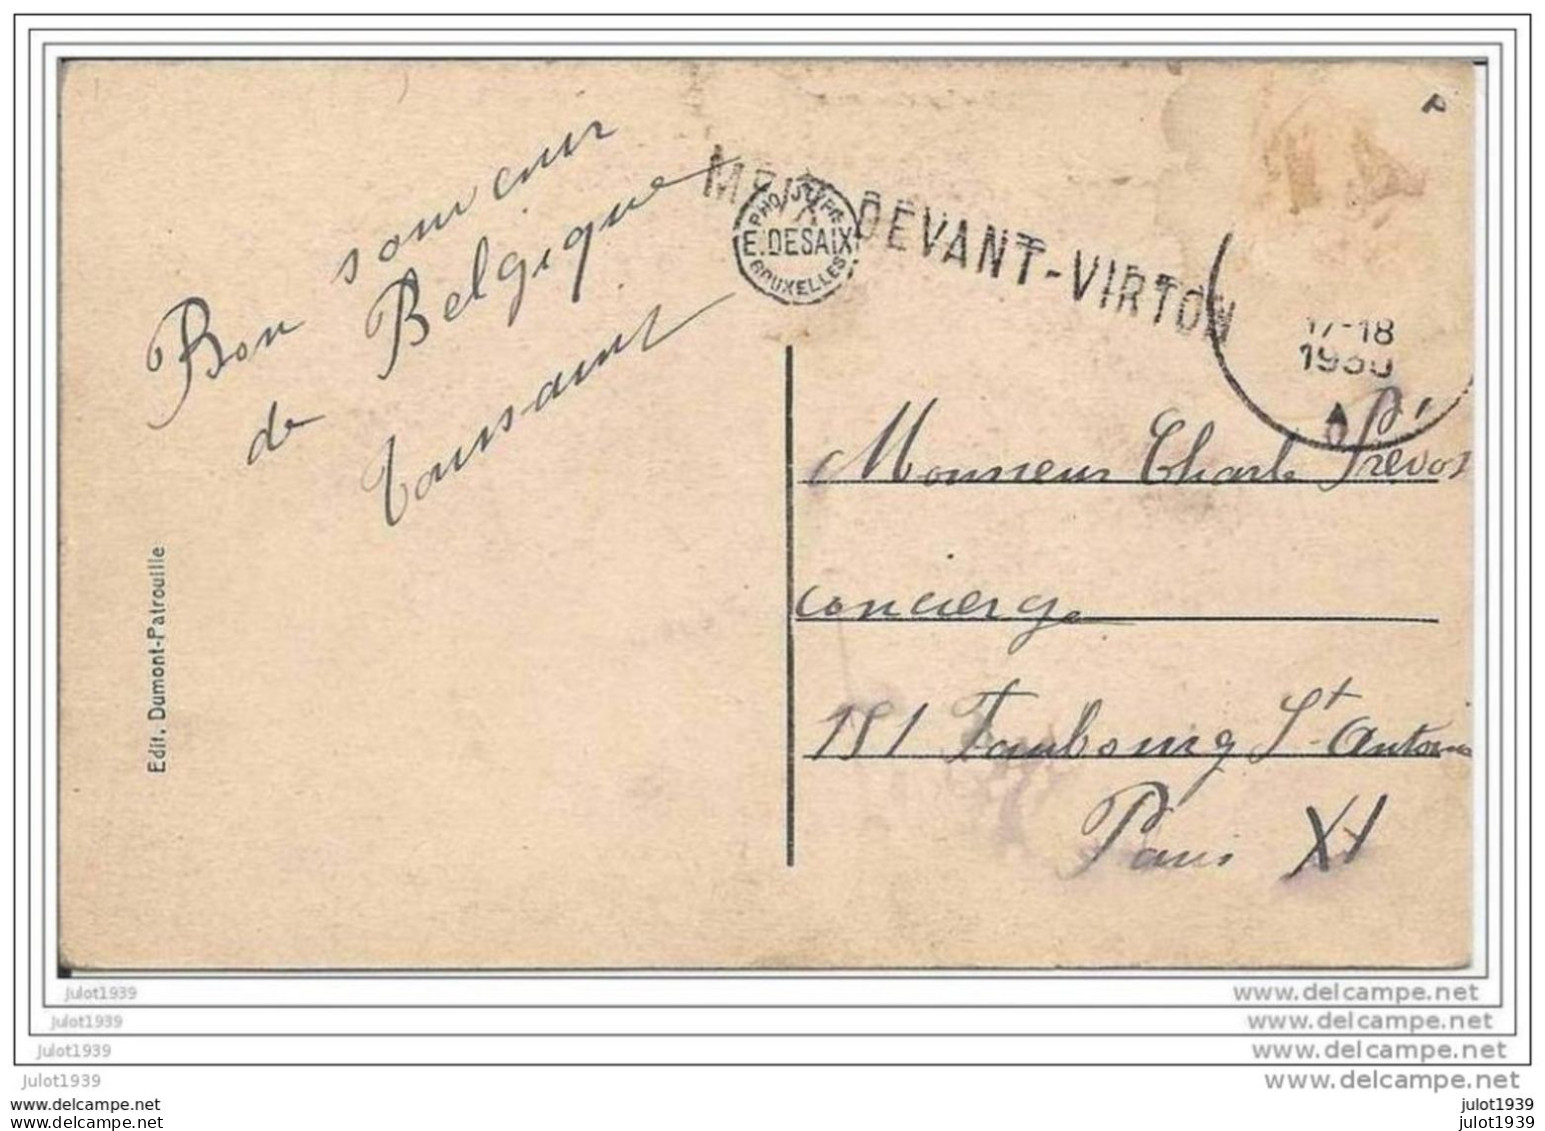 P
MEIX DEVANT-VIRTON
PHOTOTYPIE
E. DESAIX
BRUXELLES
17-18
1930
A
Bon souveur
de Belgique
Toussaint
Edit. Dumont-Patrouille
Monsieur Charle Prévos
concierge
181 Faubourg St Antoine
Paris XI
julot1939
julot1939
julot1939
julot1939
julot1939
julot1939
www.delcampe.net
www.delcampe.net
www.delcampe.net
www.delcampe.net
julot1939
julot1939